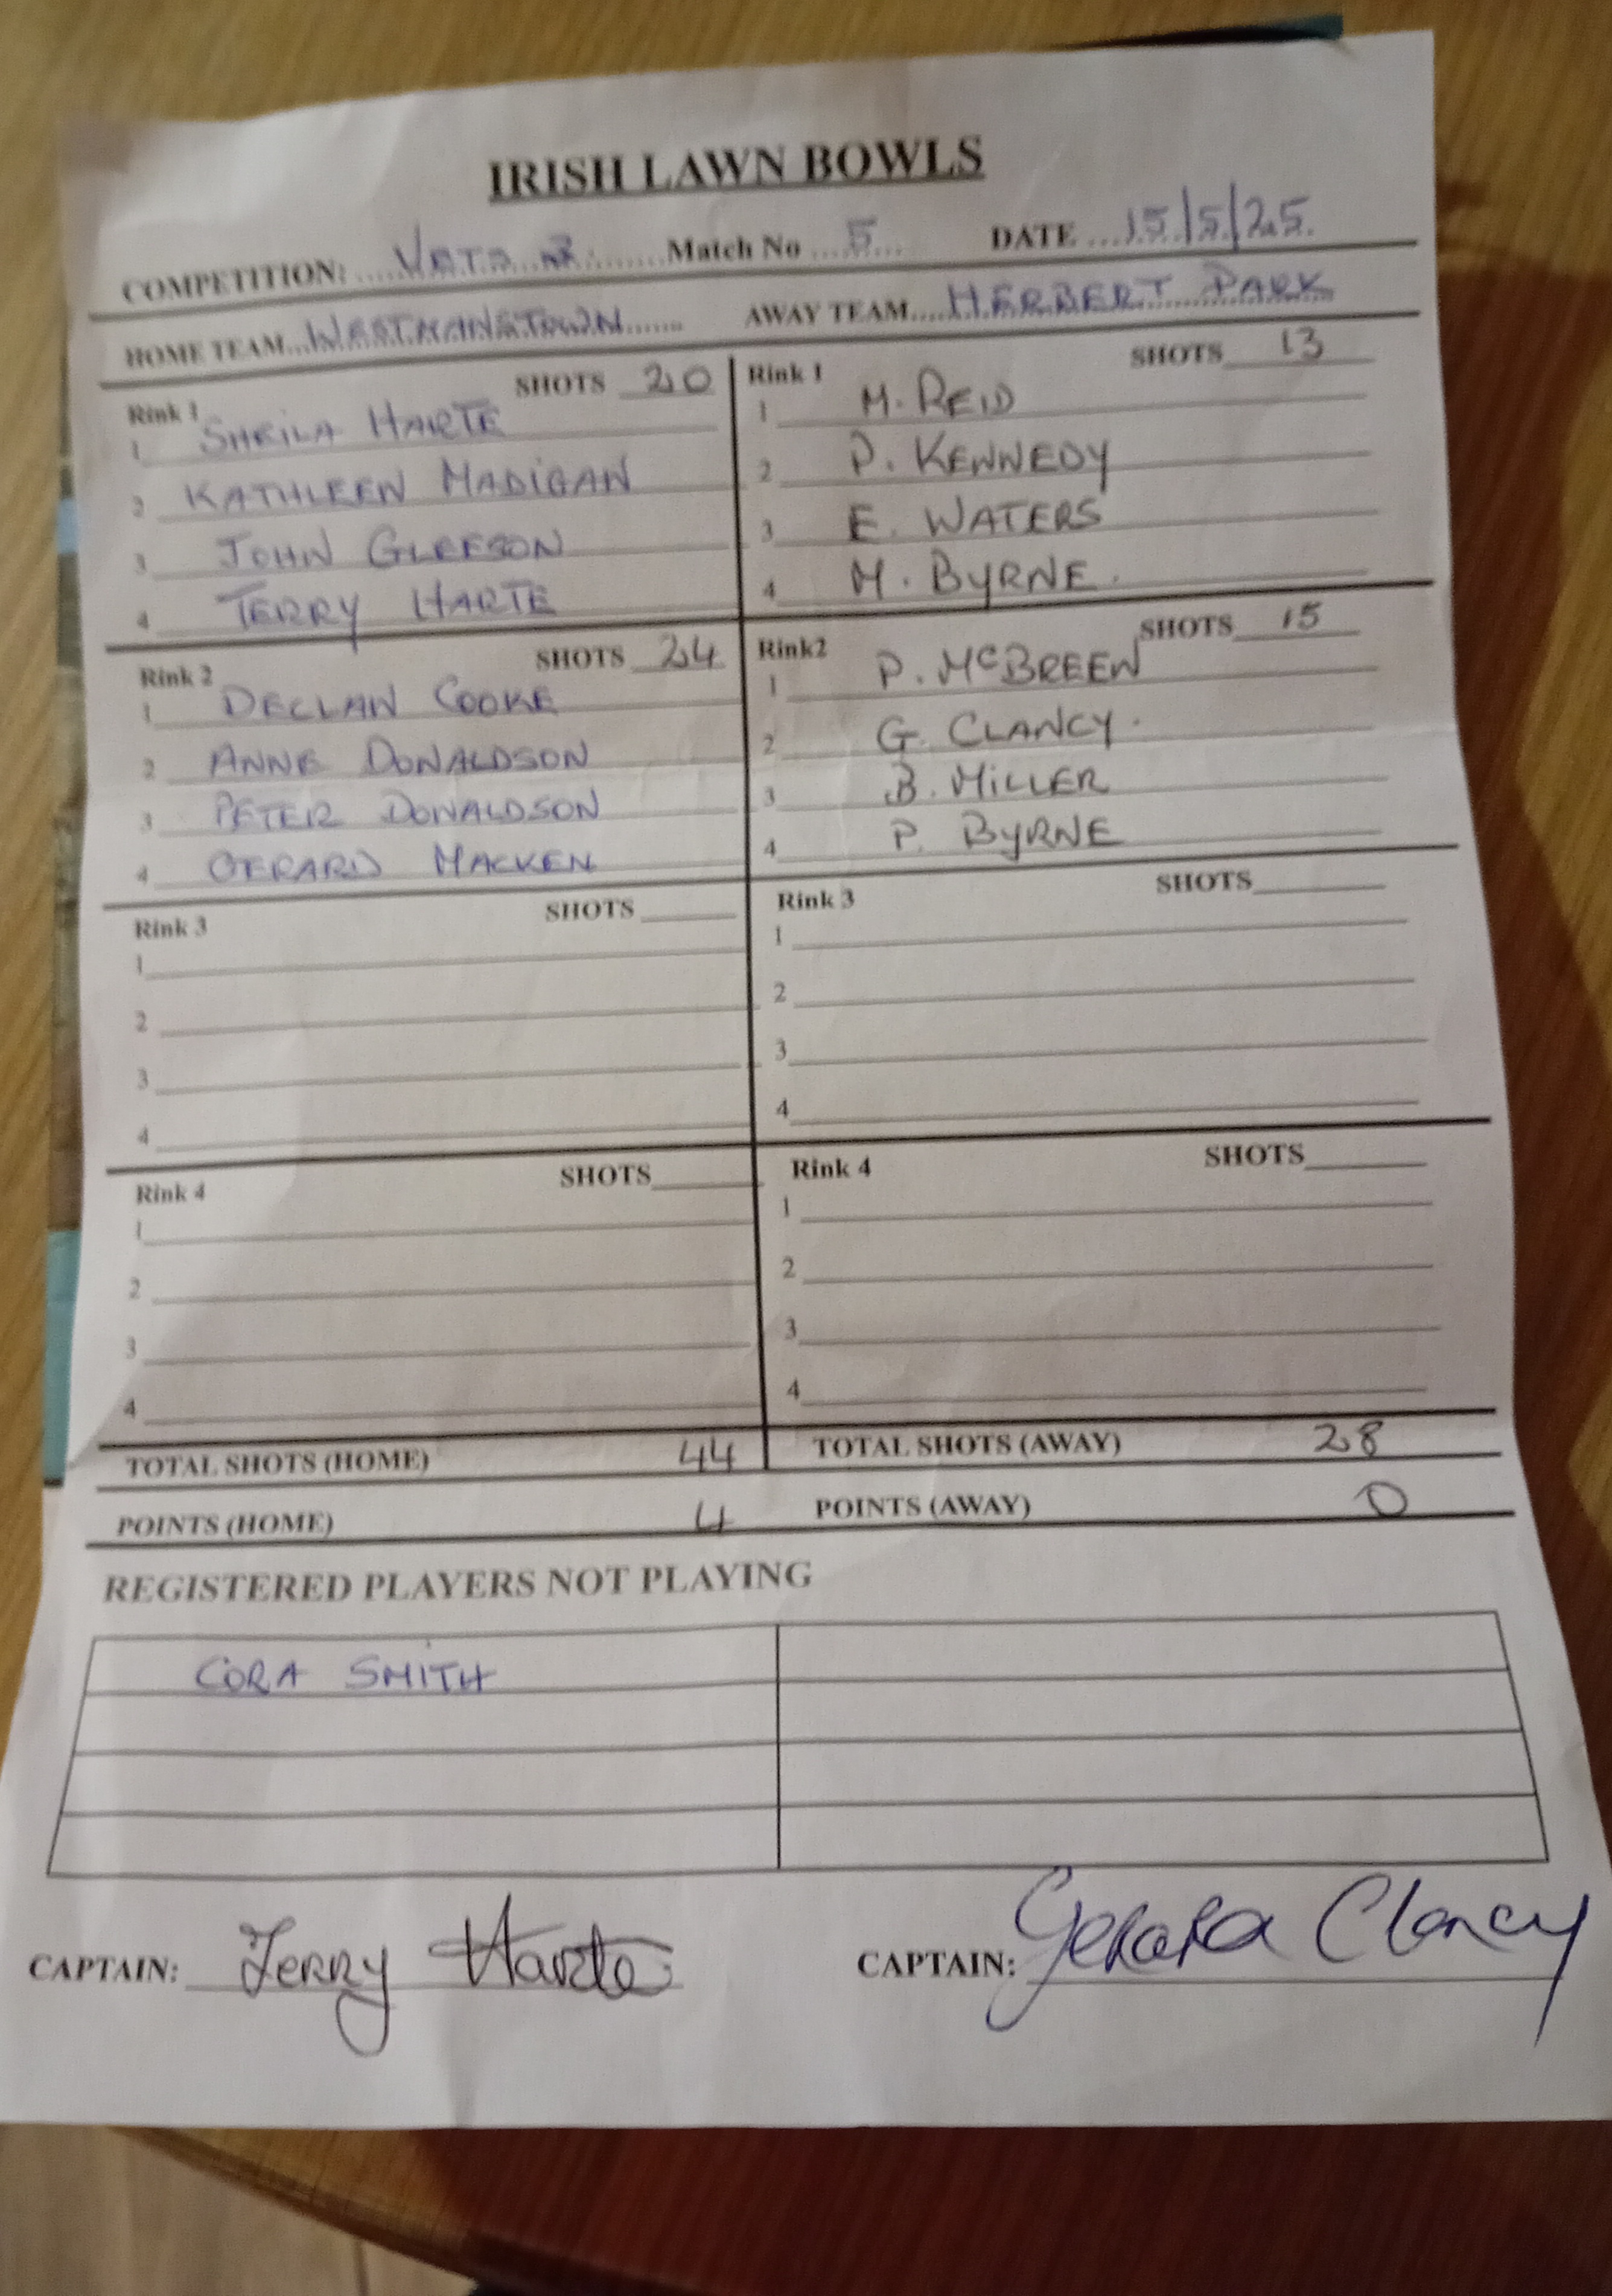 IRISH LAWN BOWLS
COMPETITION: VETS 2 Match No 5 DATE 15/5/25
HOME TEAM WESTMANSTOWN AWAY TEAM HERBERT PARK
Rink 1 SHOTS 20
1 SHEILA HARTE
2 KATHLEEN MADIGAN
3 JOHN GLEESON
4 TERRY HARTE
Rink 1 SHOTS 13
1 M. REID
2 P. KENNEDY
3 E. WATERS
4 M. BYRNE.
Rink 2 SHOTS 24
1 DECLAN COOKE
2 ANNE DONALDSON
3 PETER DONALDSON
4 GERARD MACKEN
Rink2 SHOTS 15
1 P. McBREEN
2 G. CLANCY.
3 B. MILLER
4 P. BYRNE
Rink 3 SHOTS
1
2
3
4
Rink 3 SHOTS
1
2
3
4
Rink 4 SHOTS
1
2
3
4
Rink 4 SHOTS
1
2
3
4
TOTAL SHOTS (HOME) 44 TOTAL SHOTS (AWAY) 28
POINTS (HOME) 4 POINTS (AWAY) 0
REGISTERED PLAYERS NOT PLAYING
CORA SMITH
CAPTAIN: Terry Harte CAPTAIN: Gerard Clancy